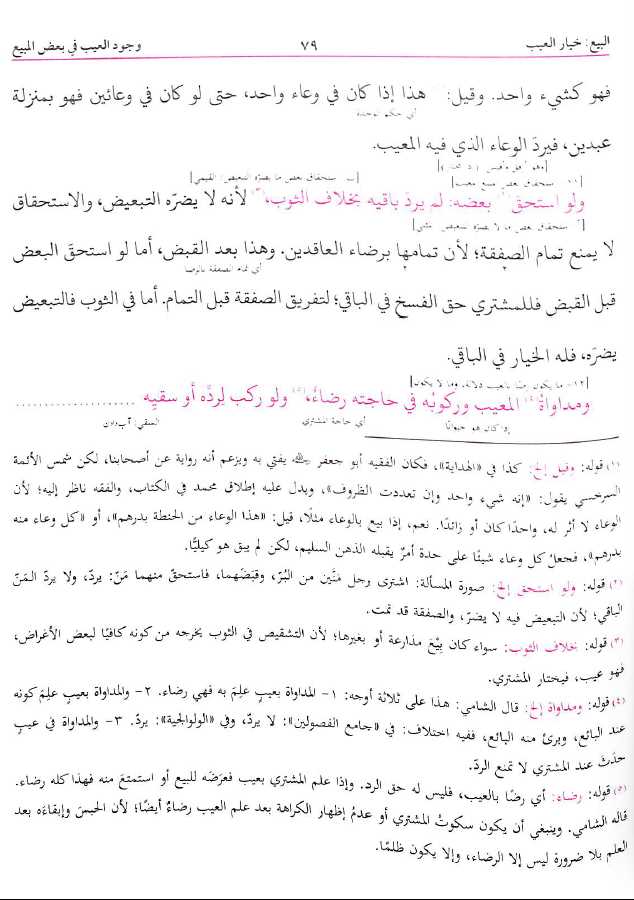 البيع: خيار العيب ٧٩ وجود العيب في بعض المبيع
فهو كشيء واحد. وقيل: هذا إذا كان في وعاء واحد، حتى لو كان في وعائين فهو بمنزلة
أي حكم لوحده
عبدين، فيردّ الوعاء الذي فيه المعيب.
ولو استحق بعضه: لم يردّ باقيه بخلاف الثوب،(٣) لأنه لا يضرّه التبعيض، والاستحقاق
لا يمنع تمام الصفقة؛ لأن تمامها برضاء العاقدين. وهذا بعد القبض، أما لو استحقّ البعض
أي تمام الصفقة بالرضا
قبل القبض فللمشتري حق الفسخ في الباقي؛ لتفريق الصفقة قبل التمام. أما في الثوب فالتبعيض
يضرّه، فله الخيار في الباقي.
[١٢- ما يكون رضًا بالعيب دلالة، وما لا يكون]
ومداواةُ(٤) المعيب وركوبُه في حاجته رضاءٌ،(٥) ولو ركب لِردِّه أو سقيِه ..................
إذا كان هو حيوانًا أي حاجة المشتري
(١) قوله: وقيل إلخ: كذا في «الهداية»، فكان الفقيه أبو جعفر يفتي به ويزعم أنه رواية عن أصحابنا، لكن شمس الأئمة
السرخسي يقول: «إنه شيء واحد وإن تعددت الظروف»، ويدل عليه إطلاق محمد في الكتاب، والفقه ناظر إليه؛ لأن
الوعاء لا أثر له، واحدًا كان أو زائدًا. نعم، إذا بيع بالوعاء مثلًا، قيل: «هذا الوعاء من الحنطة بدرهم»، أو «كل وعاء منه
بدرهم»، فجعلُ كل وعاء شيئًا على حدة أمرٌ يقبله الذهن السليم، لكن لم يبق هو كيليًّا.
(٢) قوله: ولو استحق إلخ: صورة المسألة: اشترى رجل مَنَّين من البُرّ، وقبَضَهما، فاستحقّ منهما مَنّ: يردّ، ولا يردّ المَنّ
الباقي؛ لأن التبعيض فيه لا يضرّ، والصفقة قد تمت.
(٣) قوله: بخلاف الثوب: سواء كان بِيْعَ مذارعة أو بغيرها؛ لأن التشقيص في الثوب يخرجه من كونه كافيًا لبعض الأغراض،
فهو عيب، فيختار المشتري.
(٤) قوله: ومداواة إلخ: قال الشامي: هذا على ثلاثة أوجه: ١- المداواة بعيبٍ علِمَ به فهي رضاء. ٢- والمداواة بعيبٍ علِمَ كونه
عند البائع، وبرئ منه البائع، ففيه اختلاف: في «جامع الفصولين»: لا يردّ، وفي «الولوالجية»: يردّ. ٣- والمداواة في عيبٍ
حدَث عند المشتري لا تمنع الردّ.
(٥) قوله: رضاء: أي رضًا بالعيب، فليس له حق الرد. وإذا علم المشتري بعيب فعرَضَه للبيع أو استمتعَ منه فهذا كله رضاء.
قاله الشامي. وينبغي أن يكون سكوتُ المشتري أو عدمُ إظهار الكراهة بعد علم العيب رضاءً أيضًا؛ لأن الحبسَ وإبقاءَه بعد
العلم بلا ضرورة ليس إلا الرضاء، وإلا يكون ظلمًا.